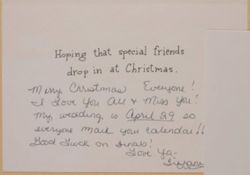 Hoping that special friends
drop in at Christmas.
Merry Christmas Everyone!
I Love You All & Miss You!
My wedding is April 29 so
everyone mark your calendar!!
Good Luck on finals!
Love Ya-
Tiffany